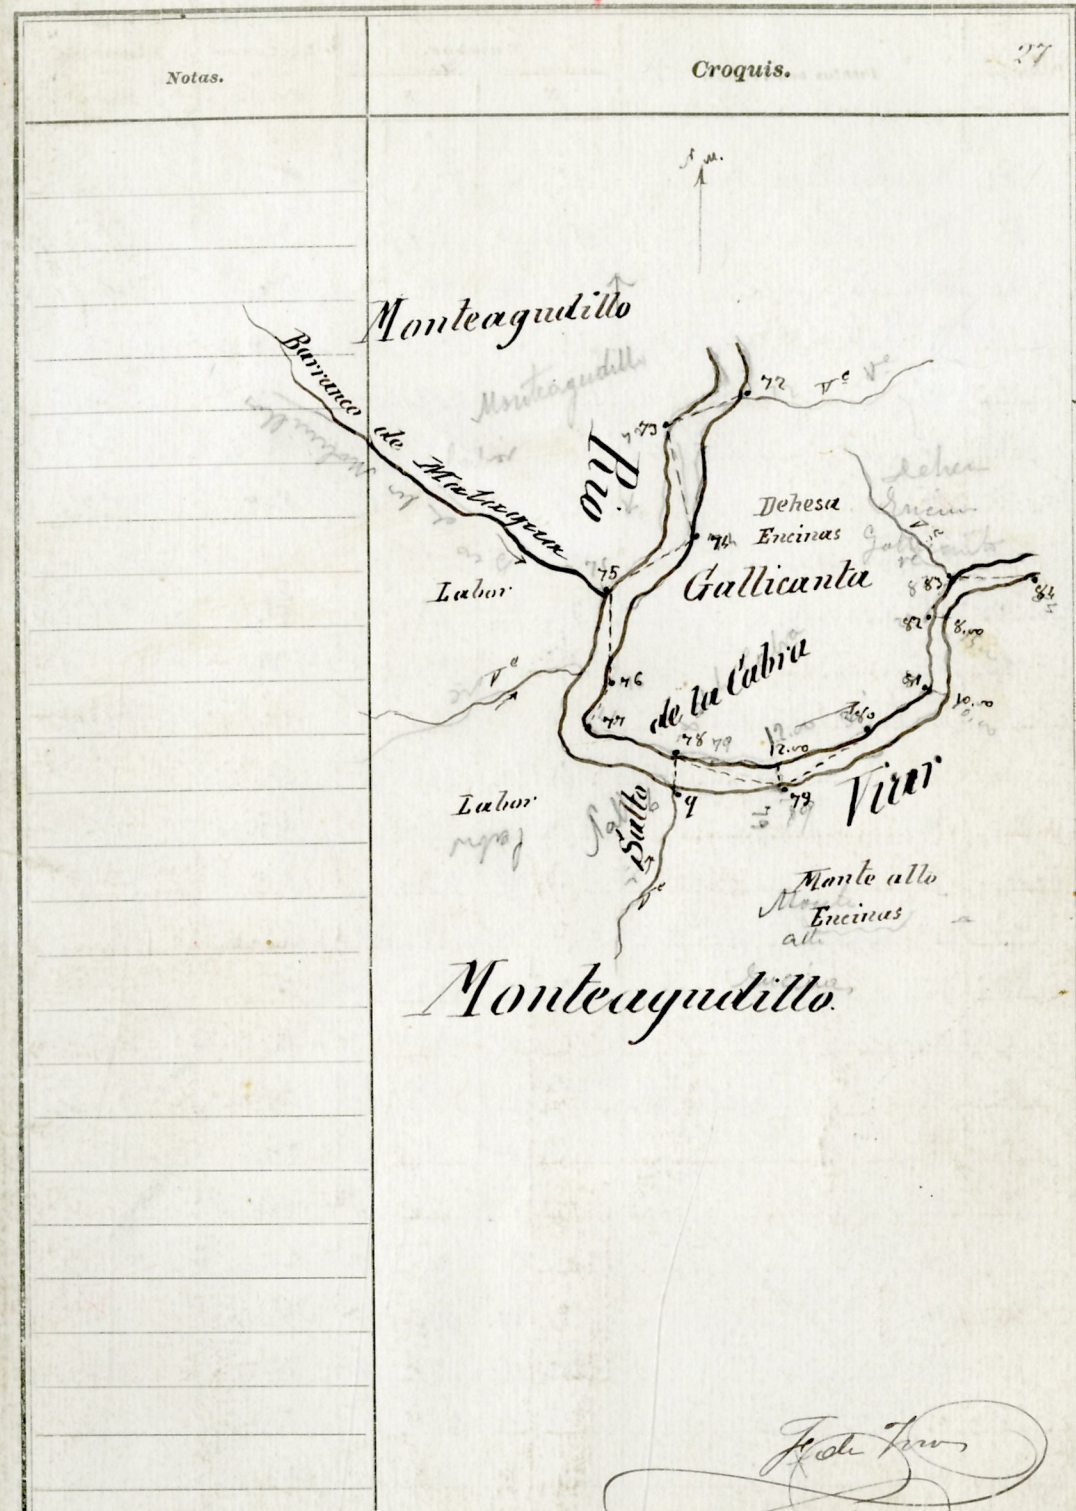 Notas.
Croquis.
27
N. M.
Monteagudillo
Monteagudillo
Barranco de
Río
72
Vª
Vª
73
Dehesa
Encinas
74
Gallicanta
75
Labor
83
84
82
8,00
Vª
76
de la Cabra
81
10,00
77
78
79
12,00
80
12,00
Labor
Salto
9
79
Vivar
Vª
Monte alto
Encinas
Monteagudillo.